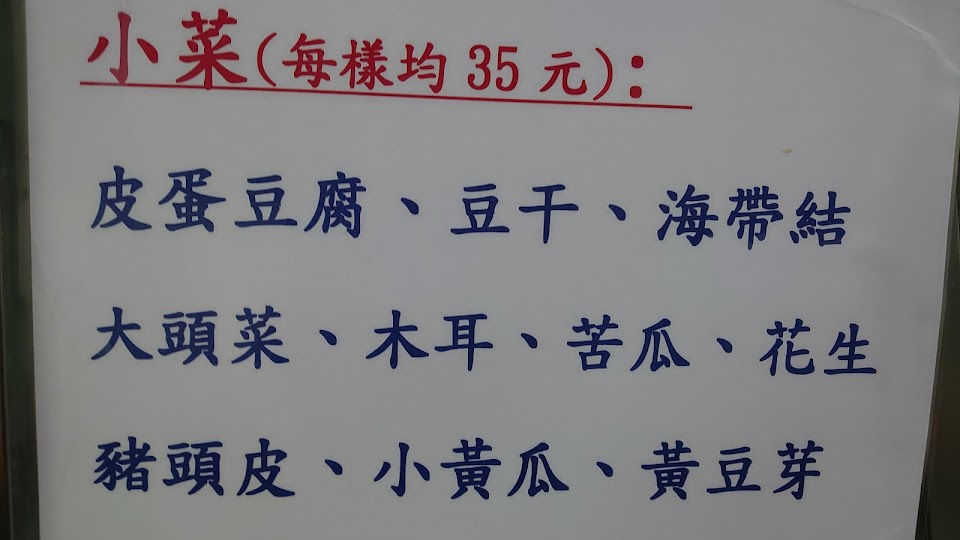 小菜(每樣均35元):
皮蛋豆腐、豆干、海帶結
大頭菜、木耳、苦瓜、花生
豬頭皮、小黃瓜、黃豆芽